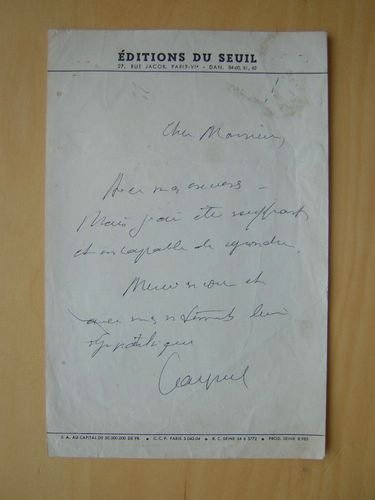 ÉDITIONS DU SEUIL
27, RUE JACOB, PARIS-VIe - DAN. 84-60, 61, 62
Cher Monsieur,
Avec mes excuses –
Mais j'ai été souffrant
et incapable de répondre.
Merci encore et
avec mes sentiments bien
sympathiques
S. A. AU CAPITAL DE 30.000.000 DE FR. • C.C.P. PARIS 3.042-04 • R. C. SEINE 54 B 5772 • PROD. SEINE